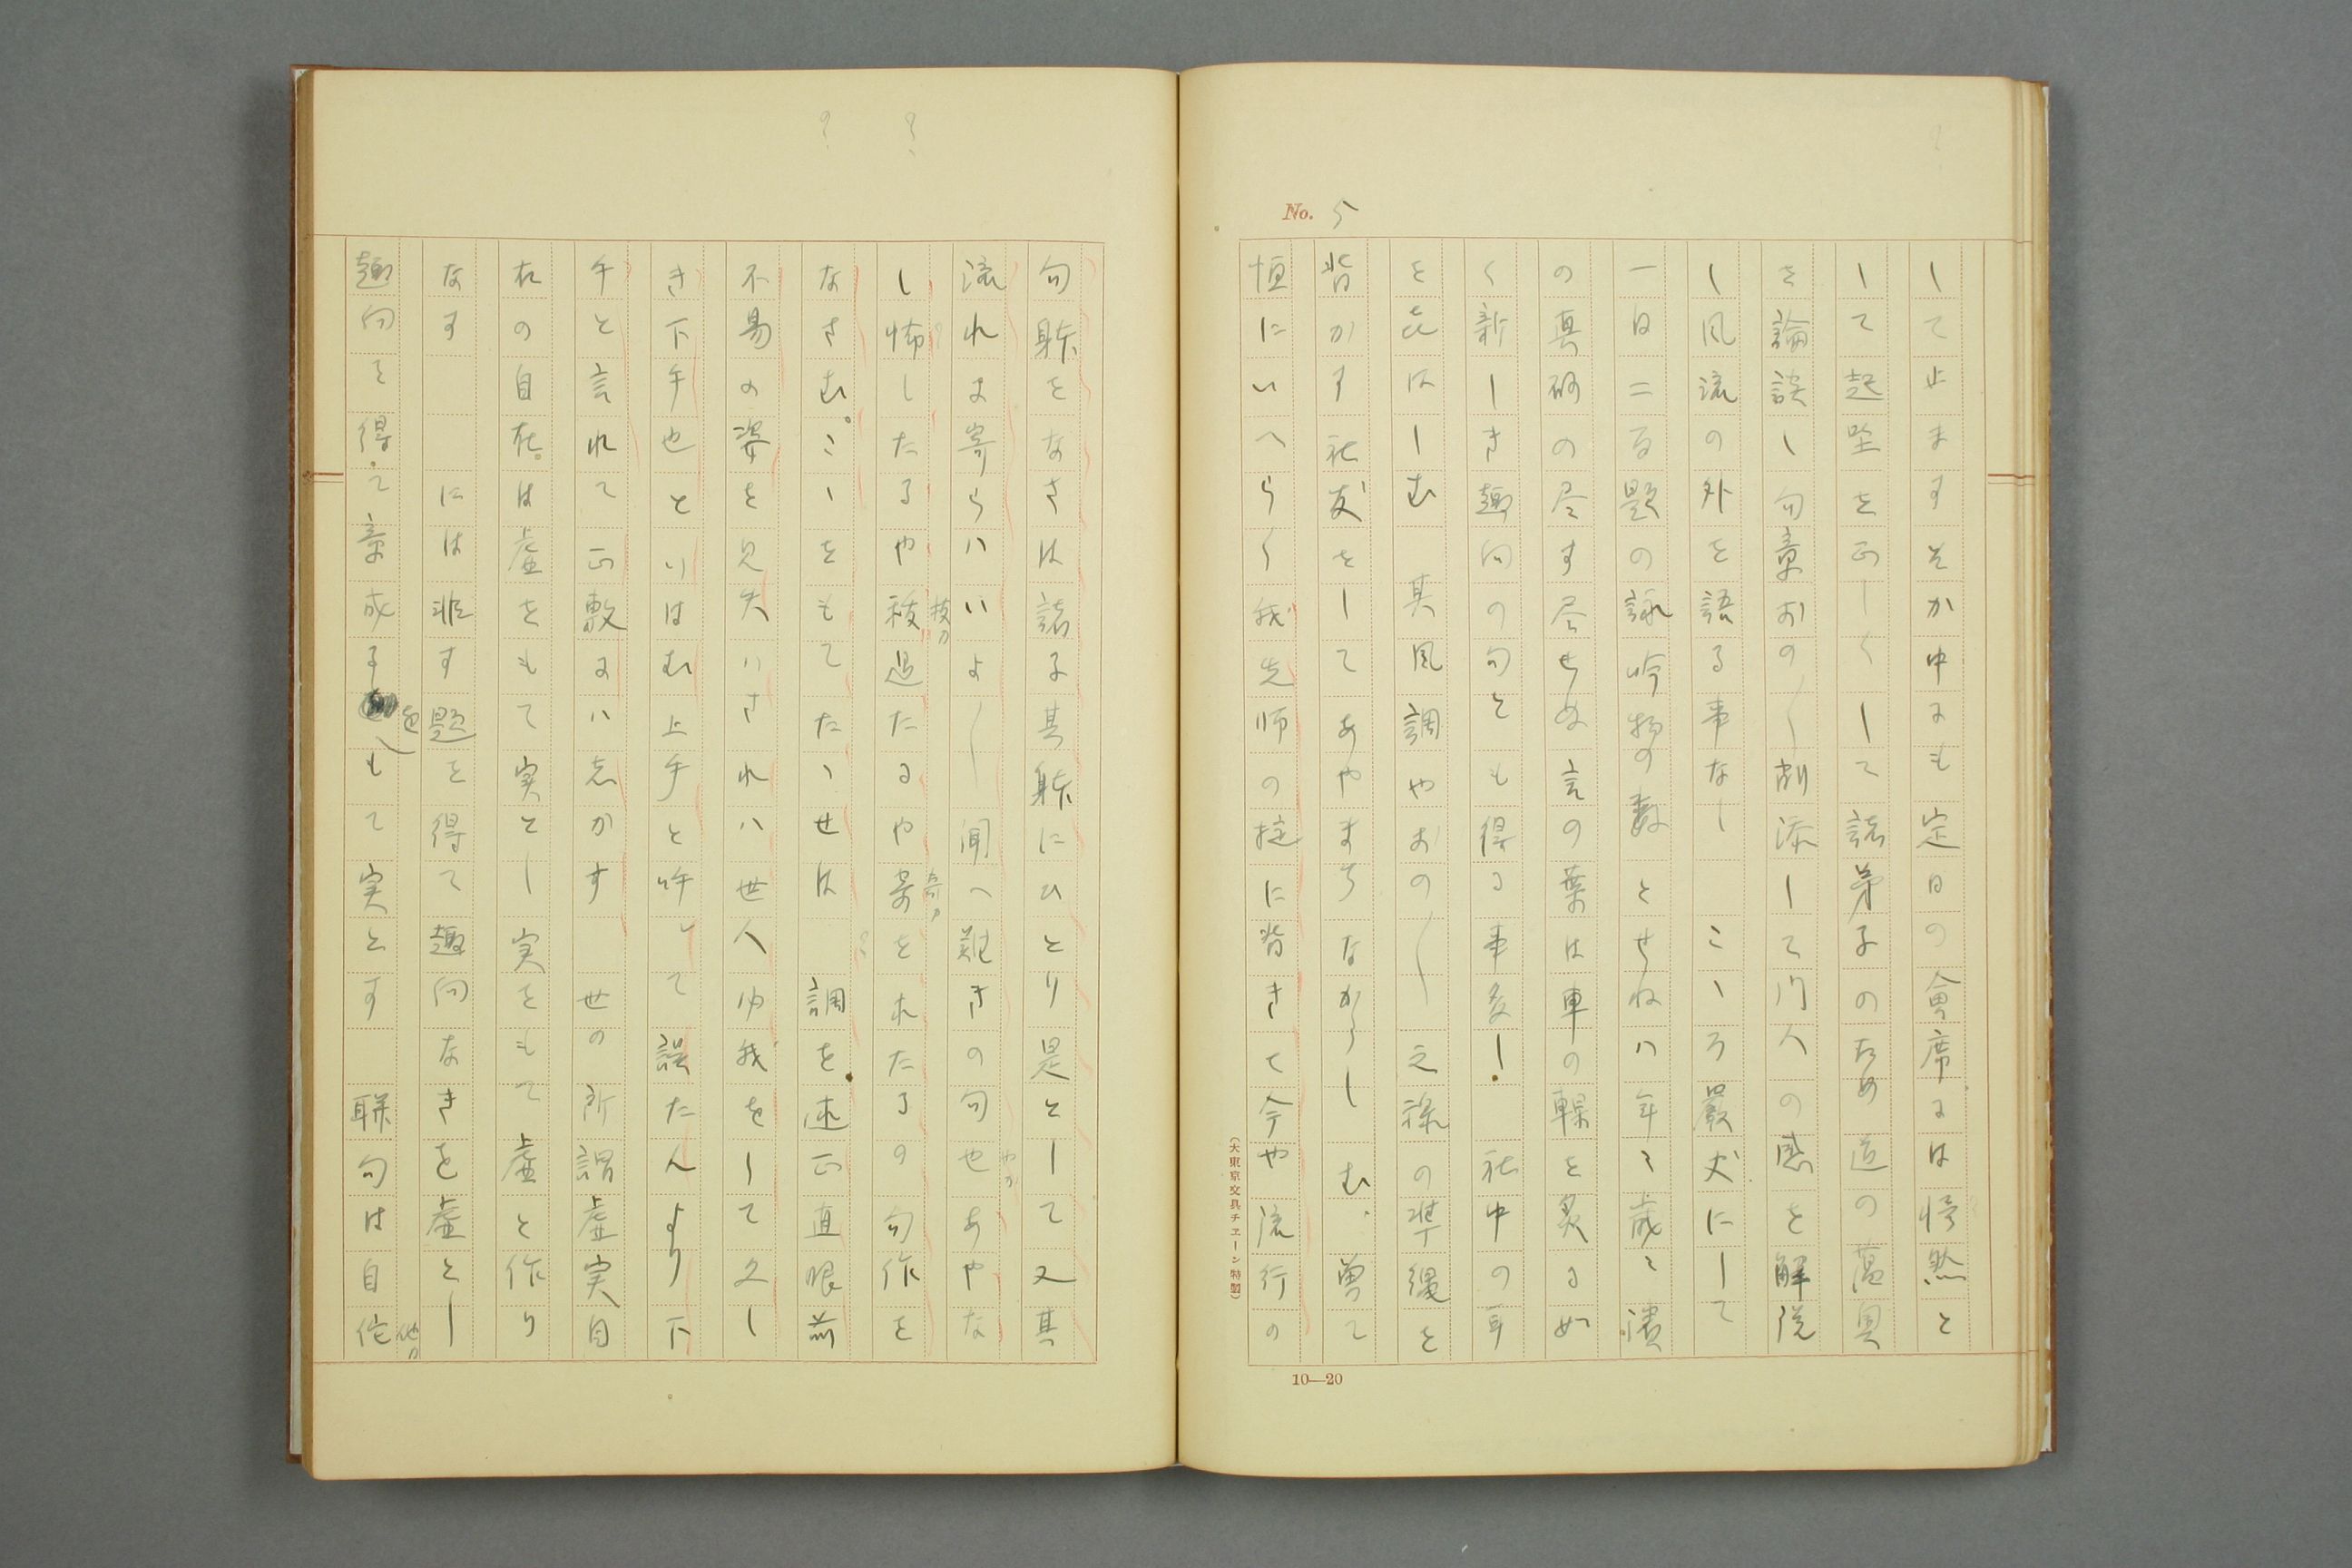 No. 5
して止ますそか中にも定日の會席には悸然と
して起坐を正しくして諸弟子のため道の薀奥
を論談し句章おの〱削添して門人の惑を解説
し風流の外を語る事なし　こゝろ嚴丈にして
一日二百題の詠吟物の数とせねハ年々歳々濱
の真砂の尽す尽せぬ言の葉は車の輠を炙るめ
く新しき趣向の句とも得る事多し　社中の耳
を㐂はしむ　其風調やおの〱元禄の準縄を
背かす社友をしてあやまちなからしむ　曽て
恒にいへらく我先師の掟に背きて今や流行の
10—20
(大東京文具チエーン特製)
句躰をなさは諸子其躰にひとり是として又其
流れに寄らハいよ〱聞へ難きの句也あやな
やカ
し怖したるや移過たるや寄をれたるの句作を
技カ
奇カ
なさむ。こゝをもてたゝせは　調を速正直眼前
不易の姿を見失ハされハ世人ゆ我をして久し
き下手也といはむ上手と呼して誤たんより下
手と言れて正敷にハ志かす　世の所謂虚実自
在の自在は虚をもて実とし実をもて虚と作り
なす　　には非す題を得て趣向なきを虚とし
趣向を得て章成るをもて実とす　聯句は自佗
他カ